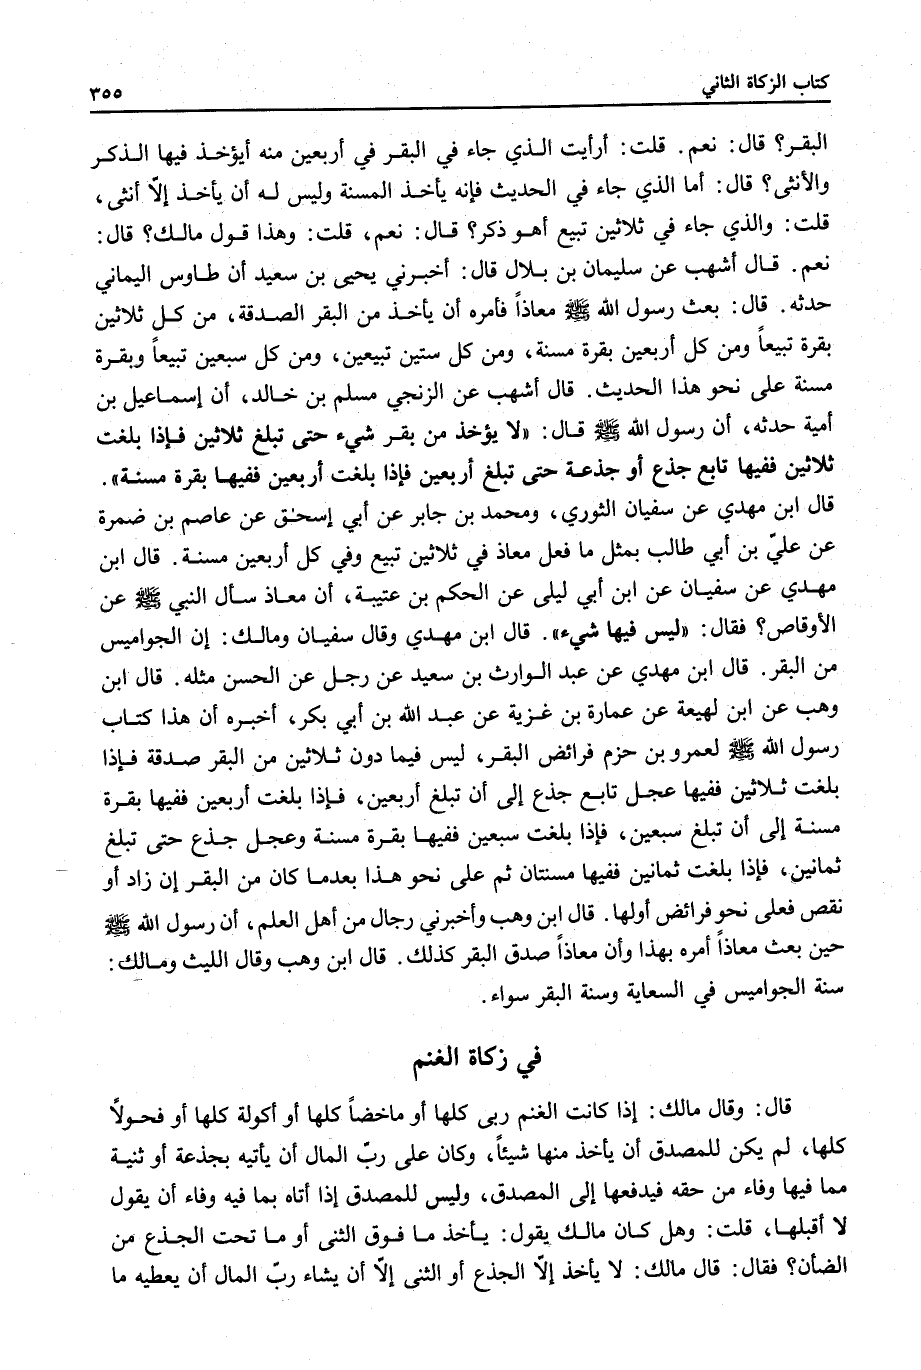 كتاب الزكاة الثاني
٣٥٥
البقـر؟ قال: نعم. قلت: أرأيت الـذي جاء في البقـر في أربعين منه أيؤخـذ فيها الـذكـر
والأنثى؟ قال: أما الذي جاء في الحديث فإنه يأخـذ المسنة وليس لـه أن يأخـذ إلاّ أنثى،
قلت: والذي جاء في ثلاثين تبيع أهـو ذكر؟ قـال: نعم، قلت: وهذا قـول مالـك؟ قال:
نعم. قـال أشهب عن سليمان بن بـلال قال: أخبـرني يحيى بن سعيد أن طـاوس اليماني
حدثه. قال: بعث رسول الله ﷺ معاذاً فأمره أن يأخـذ من البقر الصـدقة، من كـل ثلاثين
بقرة تبيعاً ومن كل أربعين بقرة مسنة، ومن كل ستين تبيعين، ومن كل سبعين تبيعاً وبقـرة
مسنة على نحو هذا الحديث. قال أشهب عن الزنجي مسلم بن خـالد، أن إسمـاعيل بن
أمية حدثه، أن رسول الله ﷺ قـال: «لا يؤخذ من بقـر شيء حتى تبلغ ثلاثين فـإذا بلغت
ثلاثين ففيها تابع جذع أو جذعـة حتى تبلغ أربعين فإذا بلغت أربعين ففيهـا بقرة مسنـة».
قال ابن مهدي عن سفيان الثوري، ومحمد بن جابر عن أبي إسحٰق عن عاصم بن ضمرة
عن عليّ بن أبي طالب بمثل ما فعل معاذ في ثلاثين تبيع وفي كل أربعين مسنـة. قال ابن
مهـدي عن سفيـان عن ابن أبي ليلى عن الحكم بن عتيبـة، أن معـاذ سـأل النبي ﷺ عن
الأوقاص؟ فقال: «ليس فيها شيء». قال ابن مهـدي وقال سفيـان ومالـك: إن الجواميس
من البقر. قال ابن مهدي عن عبد الـوارث بن سعيد عن رجـل عن الحسن مثله. قال ابن
وهب عن ابن لهيعة عن عمارة بن غـزية عن عبـد الله بن أبي بكر، أخبـره أن هذا كتـاب
رسول الله ﷺ لعمرو بن حزم فرائض البقـر، ليس فيما دون ثـلاثين من البقر صـدقة فـإذا
بلغت ثـلاثين ففيها عجـل تابـع جذع إلى أن تبلغ أربعين، فـإذا بلغت أربعين ففيها بقـرة
مسنـة إلى أن تبلغ سبعين، فإذا بلغت سبعين ففيهـا بقـرة مسنـة وعجـل جـذع حتى تبلغ
ثمانين، فإذا بلغت ثمانين ففيها مسنتان ثم على نحو هـذا بعدمـا كان من البقـر إن زاد أو
نقص فعلى نحو فرائض أولها. قال ابن وهب وأخبرني رجال من أهل العلم، أن رسول الله ﷺ
حين بعث معاذاً أمره بهذا وأن معاذاً صدق البقر كذلك. قال ابن وهب وقال الليث ومـالك:
سنة الجواميس في السعاية وسنة البقر سواء.
في زكاة الغنم
قال: وقال مالك: إذا كانت الغنم ربى كلها أو ماخضاً كلها أو أكولة كلها أو فحـولاً
كلها، لم يكن للمصدق أن يأخذ منها شيئاً، وكان على ربّ المال أن يأتيه بجذعة أو ثنيـة
مما فيها وفاء من حقه فيدفعها إلى المصدق، وليس للمصدق إذا أتاه بما فيه وفاء أن يقول
لا أقبلهـا، قلت: وهل كـان مالـك يقول: يـأخذ مـا فـوق الثنى أو مـا تحت الجـذع من
الضأن؟ فقال: قال مالك: لا يأخذ إلاّ الجذع أو الثنى إلاّ أن يشاء ربّ المال أن يعطيه ما